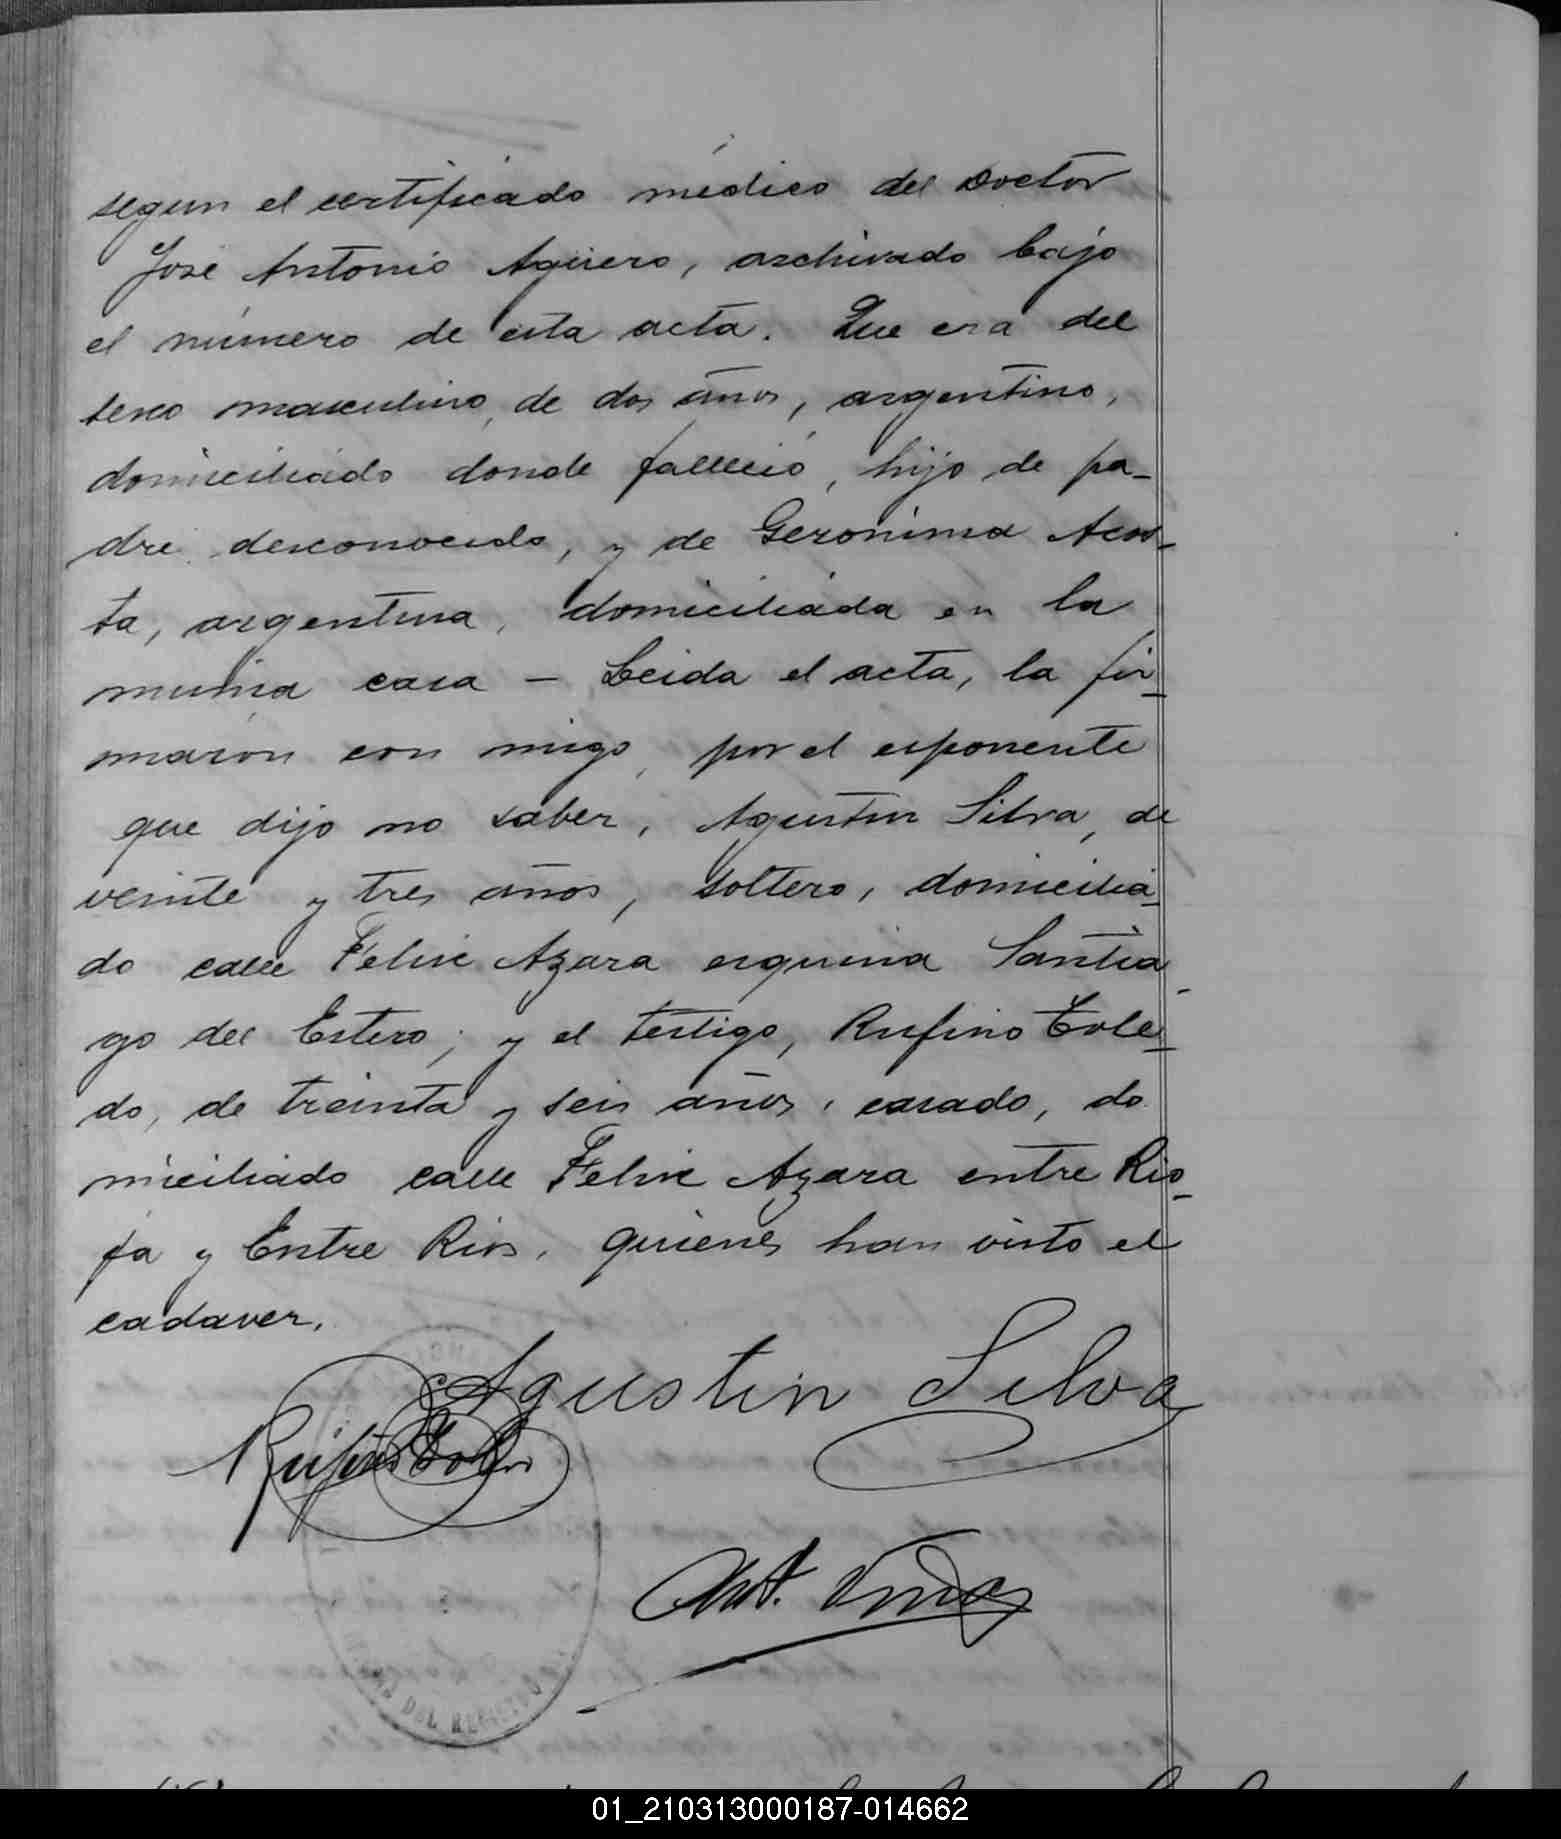 segun el certificado médico del Doctor
José Antonio Agüero, archivado bajo
el número de esta acta. Que era del
sexo masculino, de dos años, argentino,
domiciliado donde falleció, hijo de pa-
dre desconocido, y de Geronima Acos-
ta, argentina, domiciliada en la
misma casa – Leida el acta, la fir-
maron con migo, por el esponente
que dijo no saber, Agustin Silva, de
veinte y tres años, soltero, domicilia-
do calle Felix Azara esquina Santia-
go del Estero; y el testigo, Rufino Tole-
do, de treinta y seis años, casado, do
miciliado calle Felix Azara entre Rio-
ja y Entre Rios, quienes han visto el
cadaver.
Agustin Silva
Rufino Toledo
Ant.
DEL REGISTRO
01_210313000187-014662